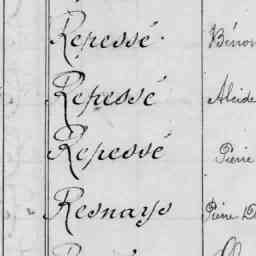 Repessé Bénon
Repessé Alcide
Repessé Pierre
Resnays Pierre D